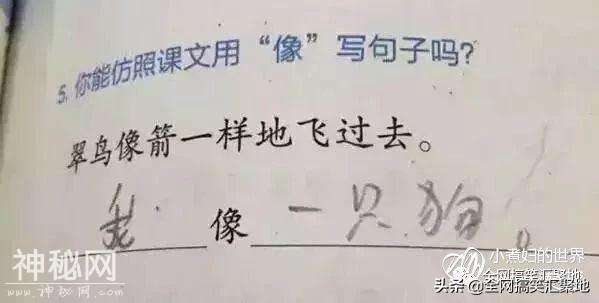 5. 你能仿照课文用“像”写句子吗?
翠鸟像箭一样地飞过去。
我 像 一只狗。
小煮妇的世界
神秘网
全网搞笑汇聚地
WWW.SHENMIW.COM
头条@全网搞笑汇聚地